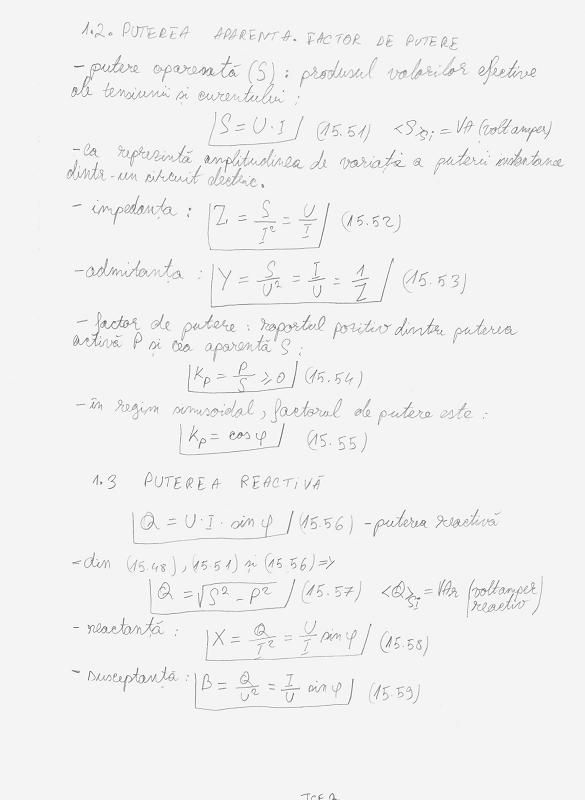 1.2. PUTEREA APARENTA. FACTOR DE PUTERE
- putere aparentă (S) : produsul valorilor efective
ale tensiunii si curentului :
S = U · I (15.51) <S>SI = VA (volt amper)
- ea reprezintă amplitudinea de variație a puterii instantanee
dintr-un circuit electric.
- impedanța : Z = S/I² = U/I (15.52)
- admitanța : Y = S/U² = I/U = 1/Z (15.53)
- factor de putere : raportul pozitiv dintre puterea
activă P și cea aparentă S :
Kp = P/S ⩾ 0 (15.54)
- în regim sinusoidal, factorul de putere este :
Kp = cos φ (15.55)
1.3 PUTEREA REACTIVĂ
Q = U · I · sin φ (15.56) - puterea reactivă
- din (15.48), (15.51) și (15.56) =>
Q = √S² - P² (15.57) <Q>SI = VAr (volt amper reactiv)
- reactanță : X = Q/I² = U/I sin φ (15.58)
- susceptanță : B = Q/U² = I/U sin φ (15.59)